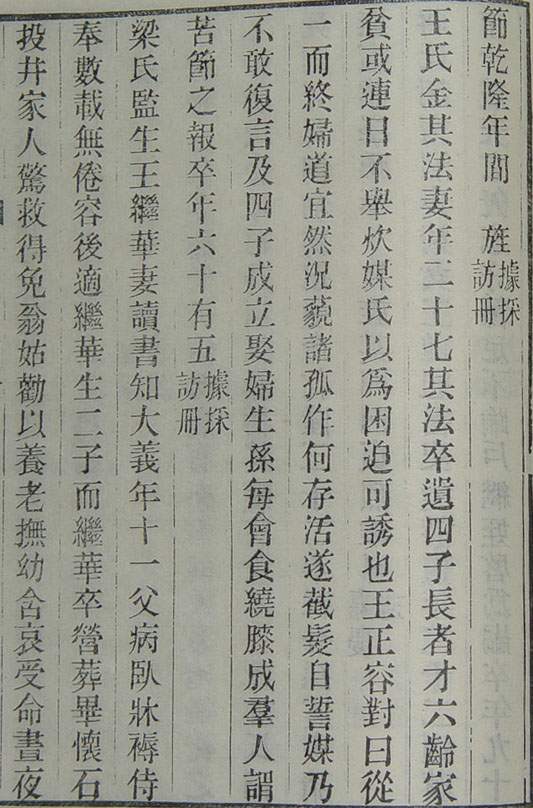 節乾隆年間　旌據採訪冊
王氏金其法妻年二十七其法卒遺四子長者才六齡家
貧或連日不舉炊媒氏以爲困迫可誘也王正容對曰從
一而終婦道宜然況藐諸孤作何存活遂截髮自誓媒乃
不敢復言及四子成立娶婦生孫每會食繞膝成羣人謂
苦節之報卒年六十有五據採訪冊
梁氏監生王繼華妻讀書知大義年十一父病臥牀褥侍
奉數載無倦容後適繼華生二子而繼華卒營葬畢懷石
投井家人驚救得免翁姑勸以養老撫幼含哀受命晝夜